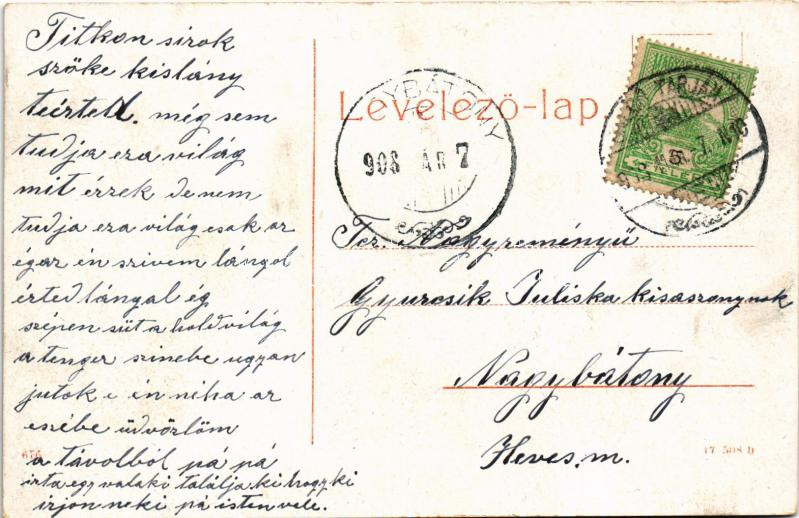 Titkon sirok
szöke kislány
teérted. még sem
tudja eza világ
mit érzek de nem
tudja eza világ csak az
égaz én szivem lángol
érted lángal ég
szépen süt a holdvilág
a tenger szinebe ugyan
jutok e én néha az
eszébe üdvözlöm
a távolból pá pá
irta egy valaki találja ki hogy ki
irjon neki pá isten véle.
676
Levelező-lap
NAGYBÁTONY
908 MÁR 7
TARJÁN
5
Tez. Nagyreményü
Gyurcsik Juliska kisaszonynok
Nagybátony
Heves.m.
17 508 b